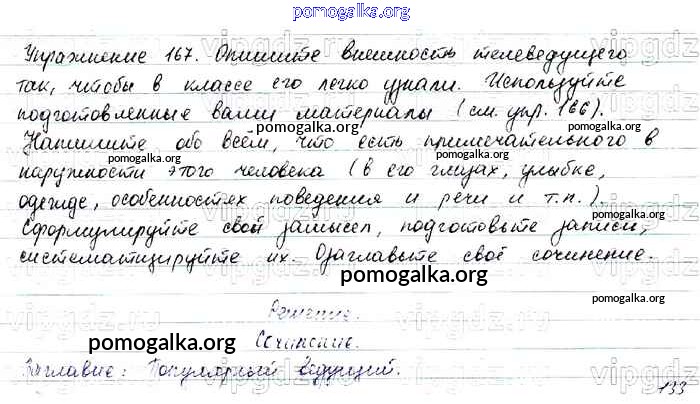 pomogalka.org
Упражнение 167. Опишите внешность телеведущего
так, чтобы в классе его легко узнали. Используйте
подготовленные вами материалы (см. упр. 166).
pomogalka.org
pomogalka.org
Напишите обо всём, что есть примечательного в
pomogalka.org
pomogalka.org
наружности этого человека (в его глазах, улыбке,
одежде, особенностях поведения и речи и т.п.).
pomogalka.org
Сформулируйте свой замысел, подготовьте записи,
систематизируйте их. Озаглавьте своё сочинение.
pomogalka.org
pomogalka.org
Решение.
pomogalka.org
Сочинение.
Заглавие: Популярный ведущий.
133